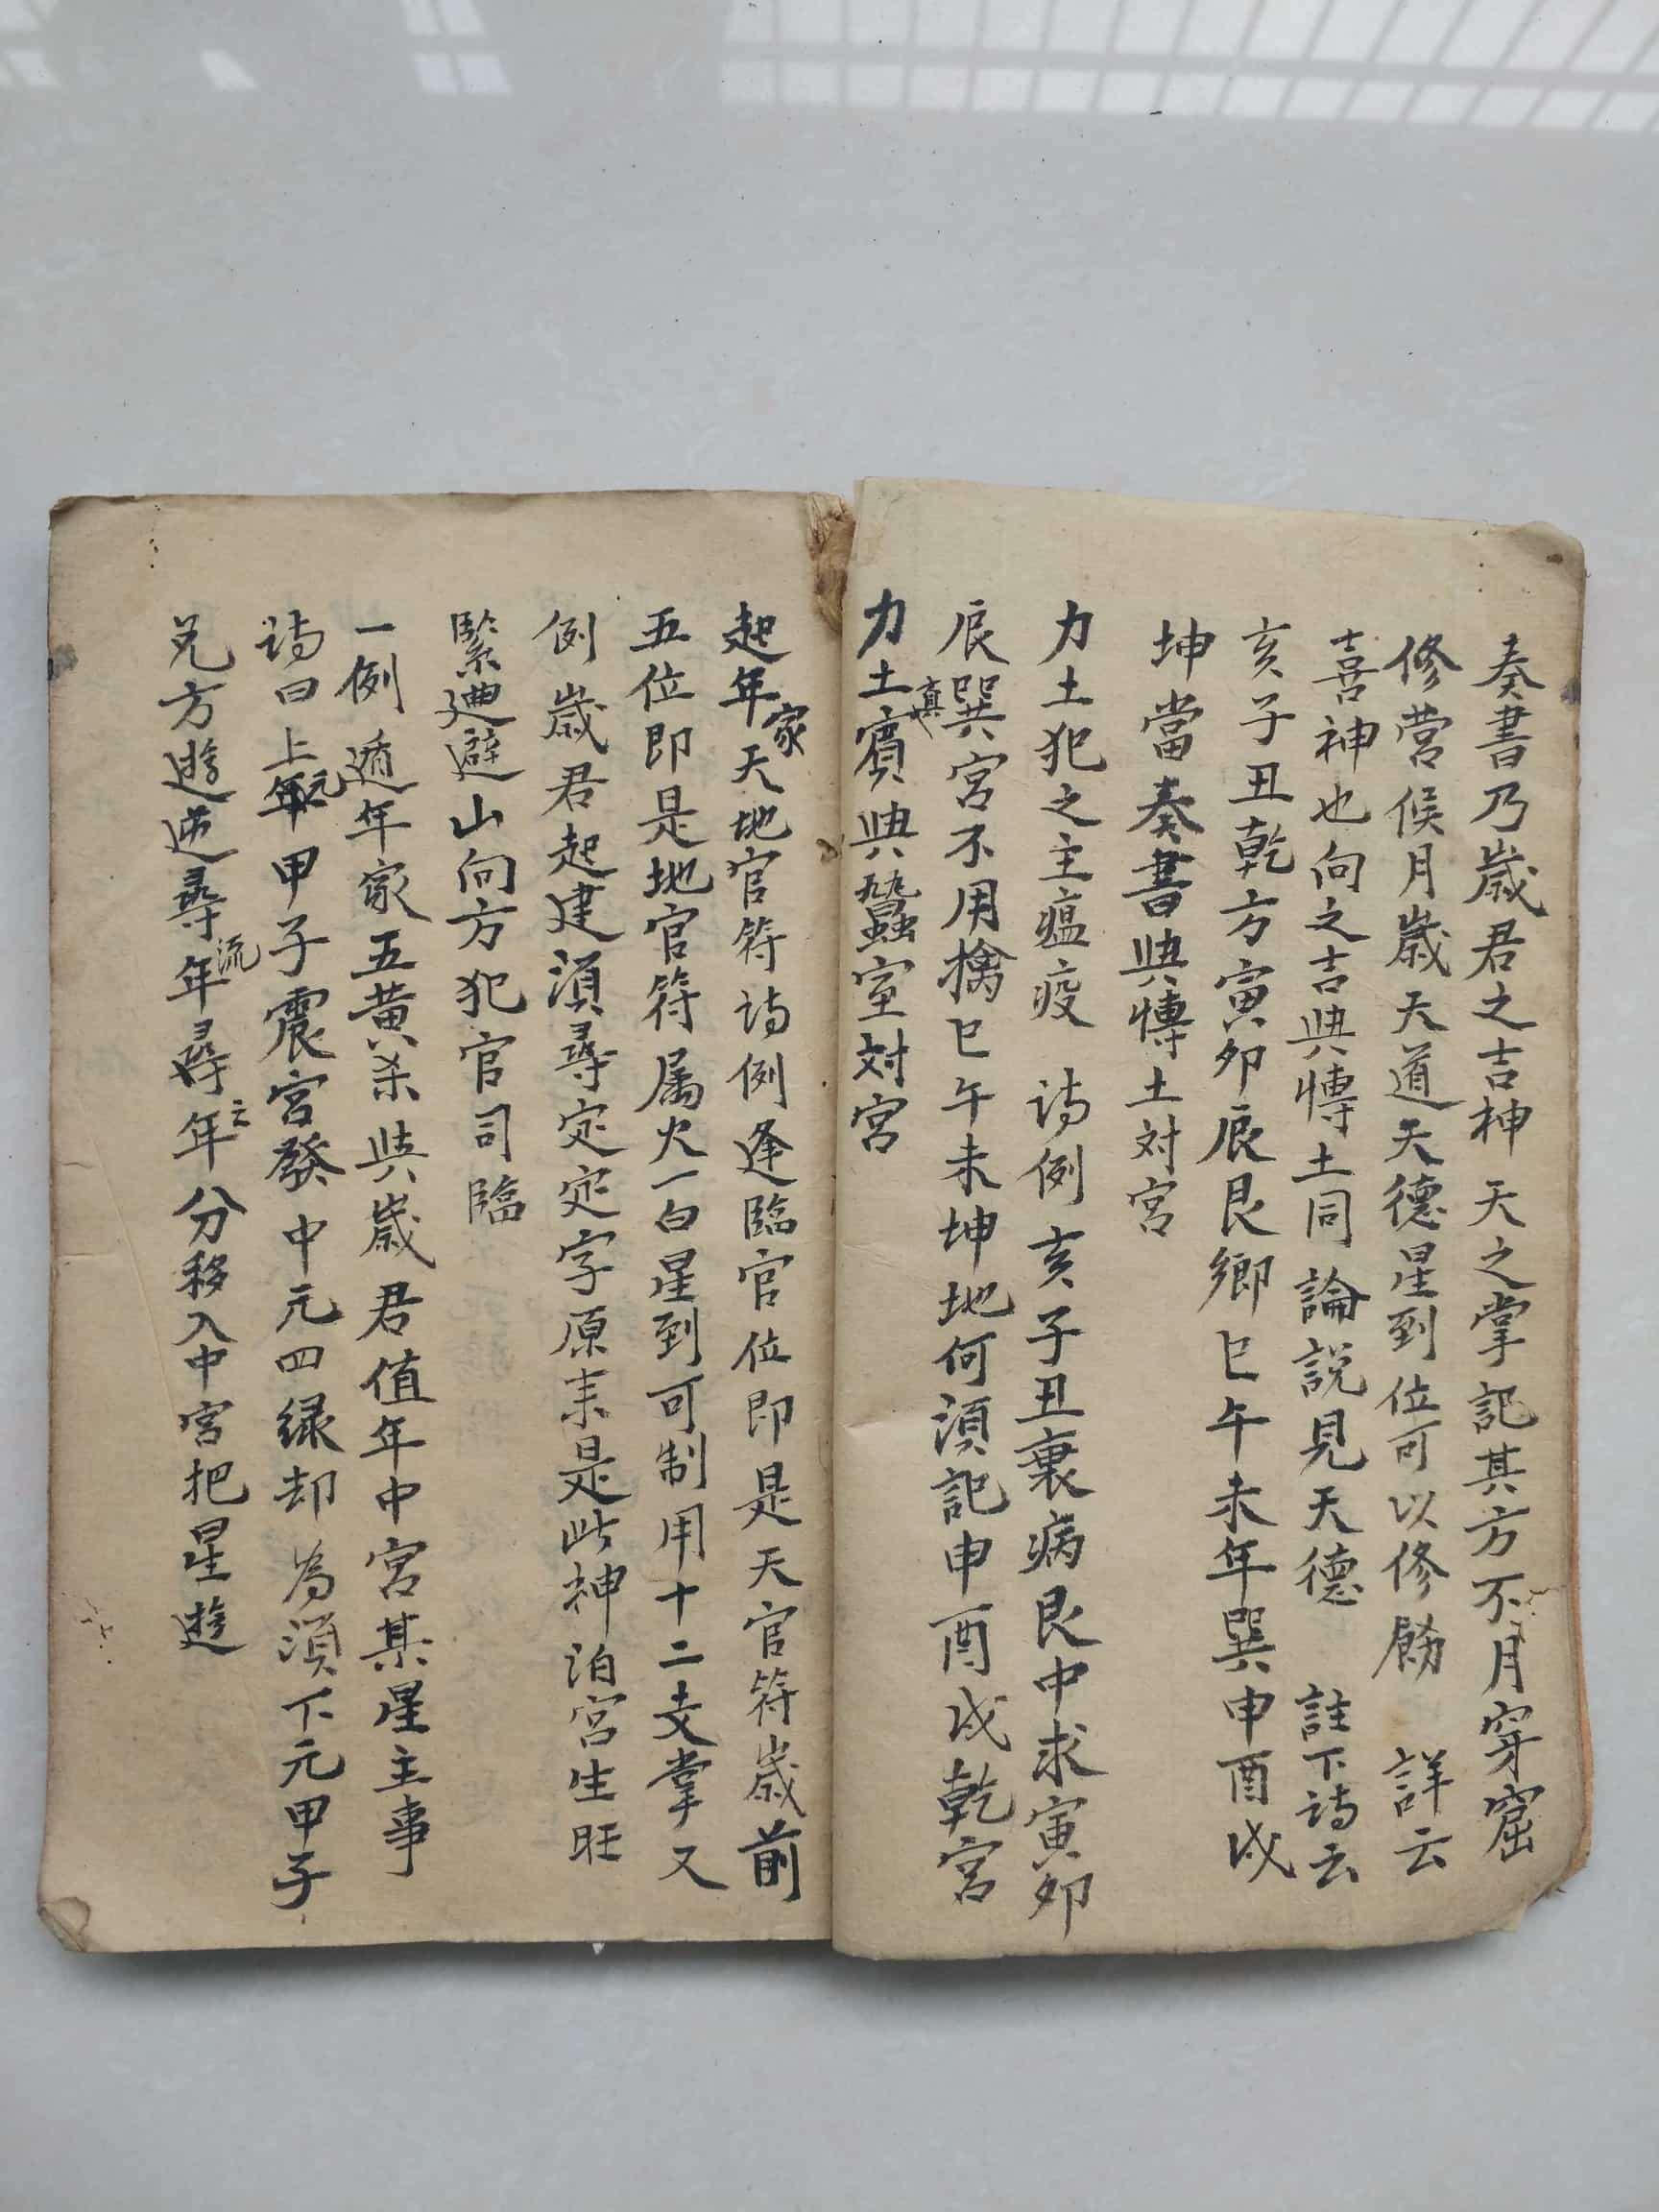 奏書乃歲君之吉神天之掌記其方不月穿窟
修营候月歲天道天德星到位可以修 詳云
喜神也向之吉與愽士同論説見天德 註下诗云
亥子丑乾方寅卯辰艮鄉巳午未年巽申酉戌
坤當奏書與愽士対宮
力士犯之主瘟疫 诗例亥子丑裏病艮中求寅卯
辰巽宮不用擒巳午未坤地何須記申酉戌乾宮
力士真與蠶室対宮
起年家天地官符诗例逢臨官位即是天官符歲前
五位即是地官符属火一白星到可制用十二支掌又
例歲君起建須尋定定字原来是此神泊宮生旺
緊廻避山向方犯官司臨
一例遁年家五黄杀與歲君值年中宮某星主事
诗曰上元甲子震宮發中元四緑却為須下元甲子
兑方遊逆尋流年尋年云分移入中宮把星遊